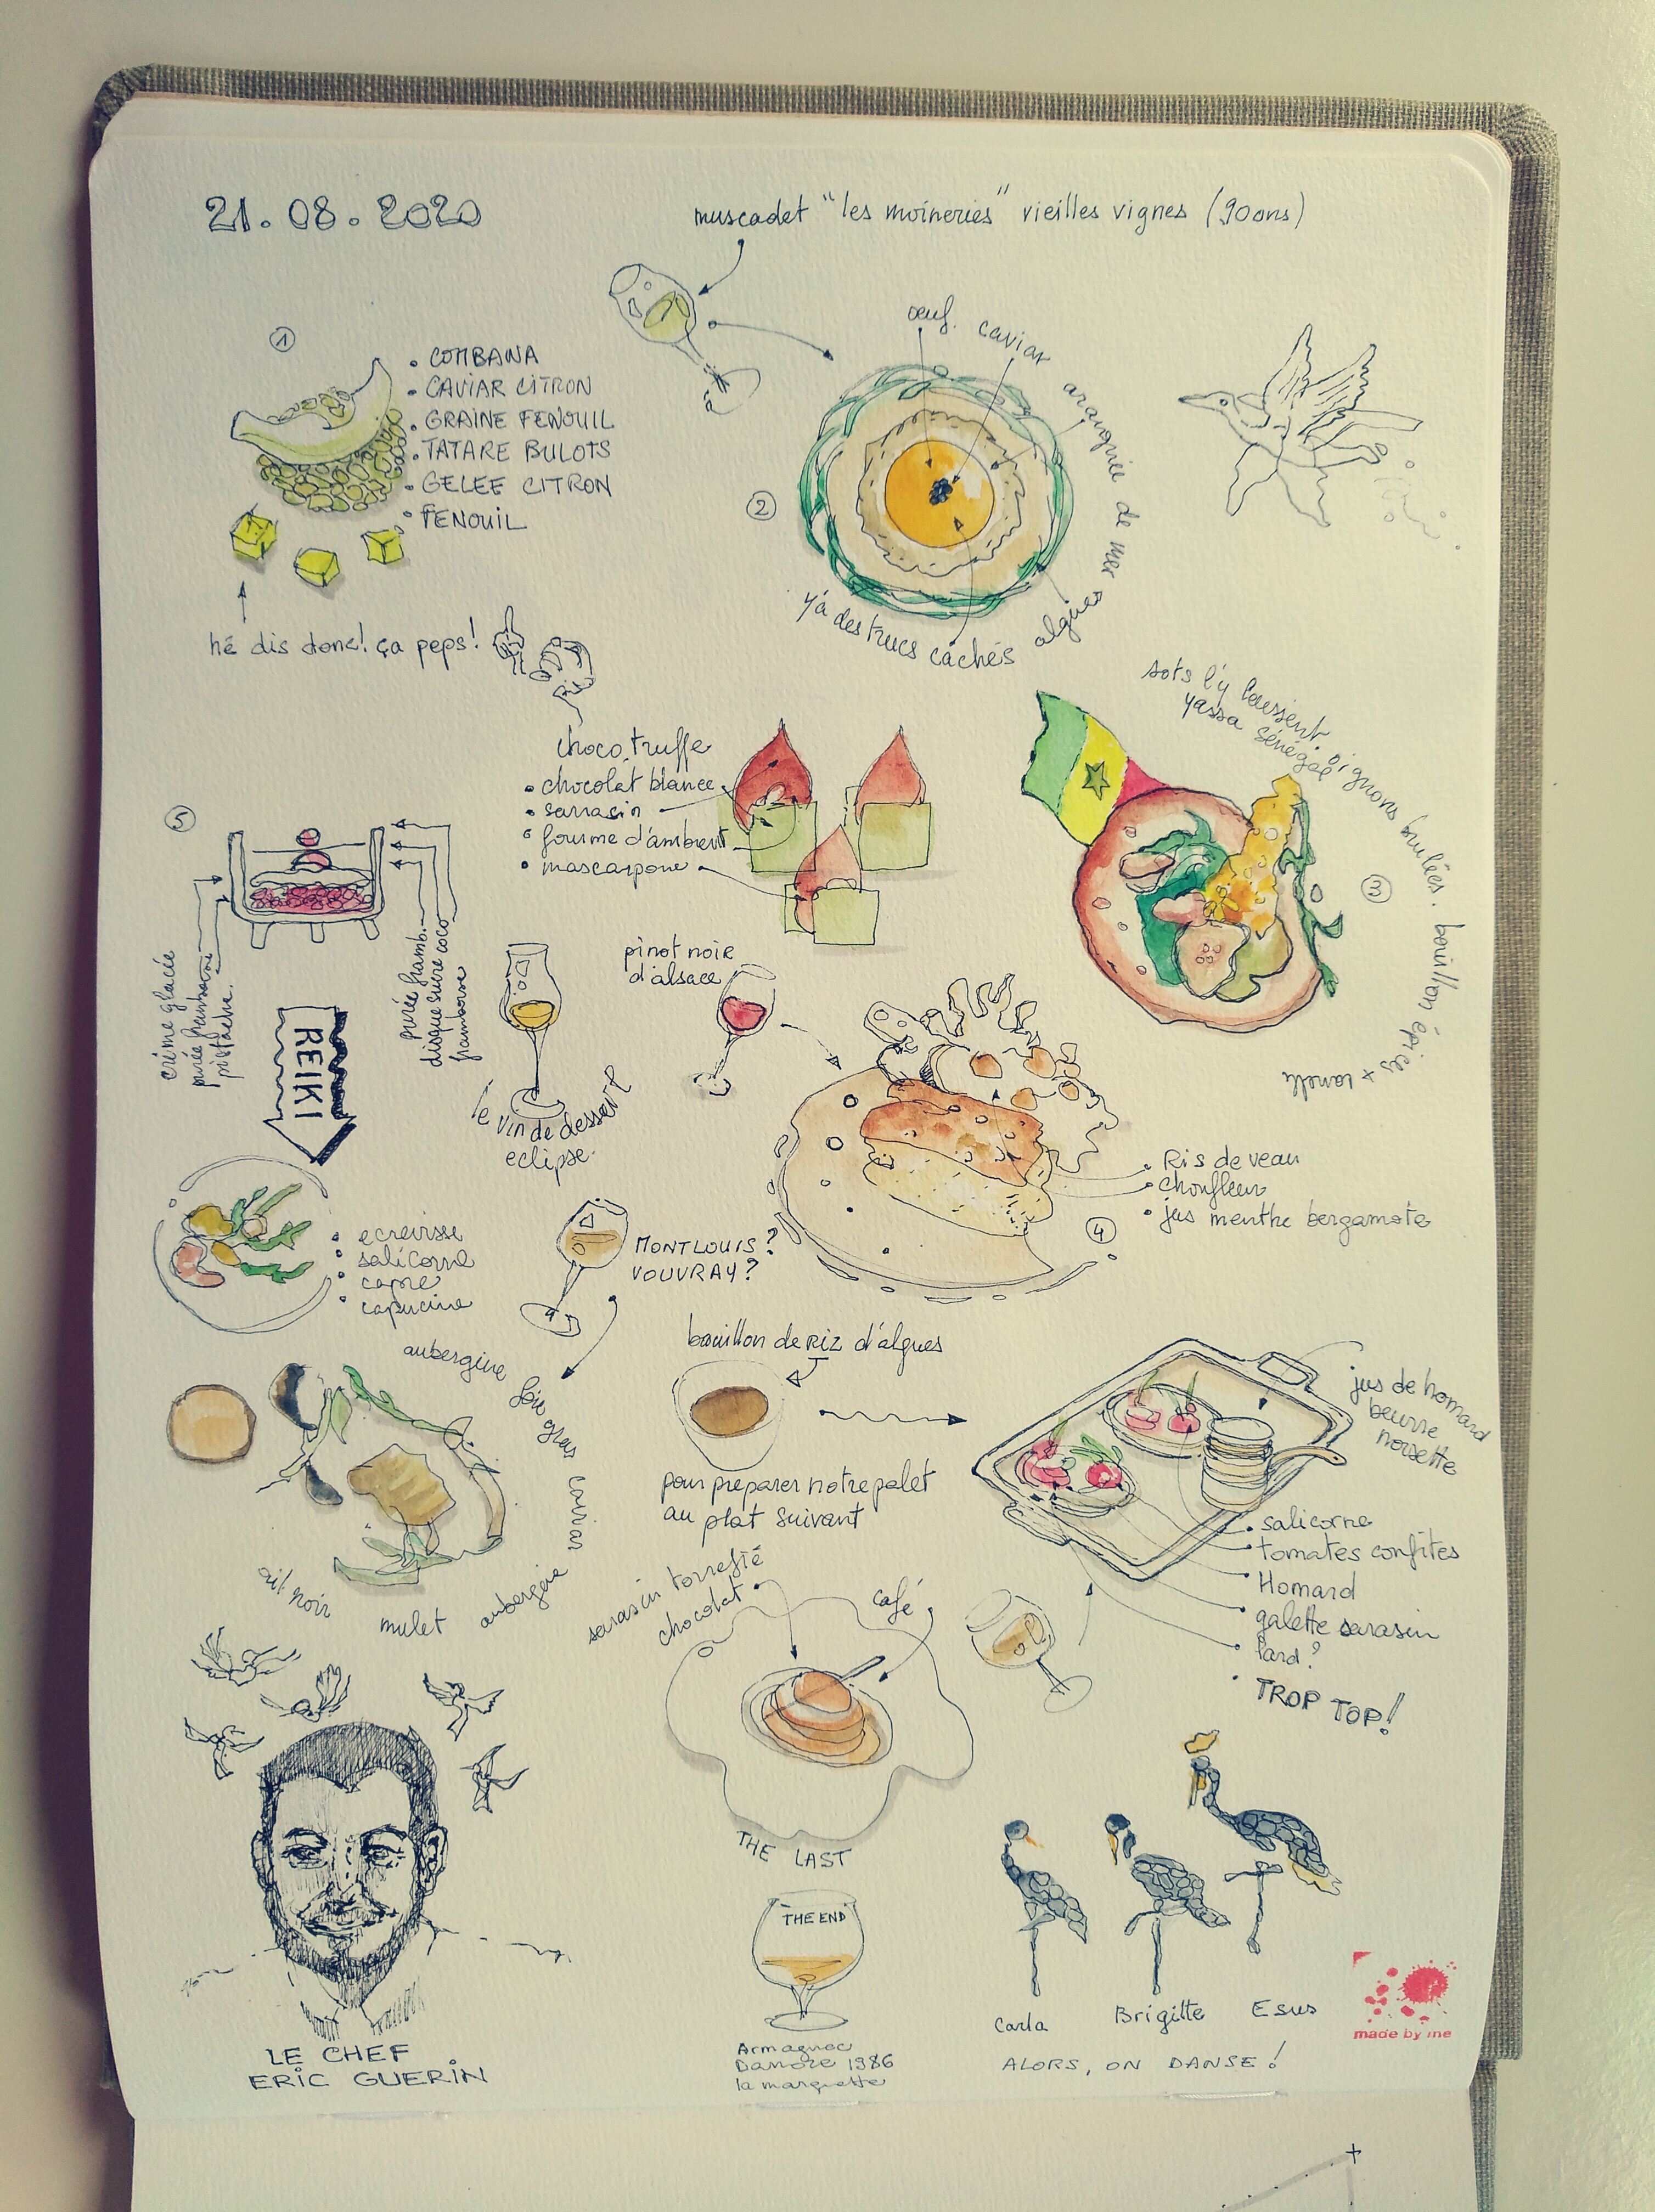 21.08.2020
muscadet "les moineries" vieilles vignes (90ans)
①
• COMBAWA
• CAVIAR CITRON
• GRAINE FENOUIL
• TATARE BULOTS
• GELEE CITRON
• FENOUIL
hé dis donc! ça peps!
②
œuf. caviar araignée de mer
algues
y'a des trucs cachés
choco truffe
• chocolat blanc
• sarrasin
• fourme d'ambert
• mascarpone
sots l'y laissent. oignons brulées. bouillon épices
yassa sénégal
③
⑤
crème glacée
purée framboise
pistache.
purée framb.
disque sucre coco
framboise
REIKI
le vin de dessert
eclipse.
pinot noir
d'alsace
• Ris de veau
• choufleur
• jus menthe bergamote
④
• ecrevisse
• salicorne
• capre
• capucine
MONTLOUIS?
VOUVRAY?
aubergine foie gras caviar aubergine
mulet
ail noir
bouillon de RIZ d'algues
pour préparer notre palet
au plat suivant
jus de homard
beurre
noisette
• salicorne
• tomates confites
Homard
galette sarasin
lard?
• TROP TOP!
sarasin torréfié
chocolat
café
THE LAST
THE END
Armagnac
1986
LE CHEF
ERIC GUERIN
Carla
Brigitte
Esus
ALORS, ON DANSE!
made by me